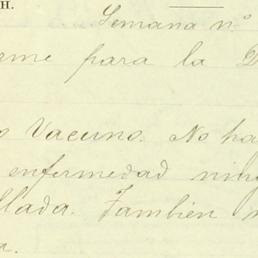 H.
Semana nº
rme para la D
o Vacuno. No ha
enfermedad nin
llada. Tambien
a.